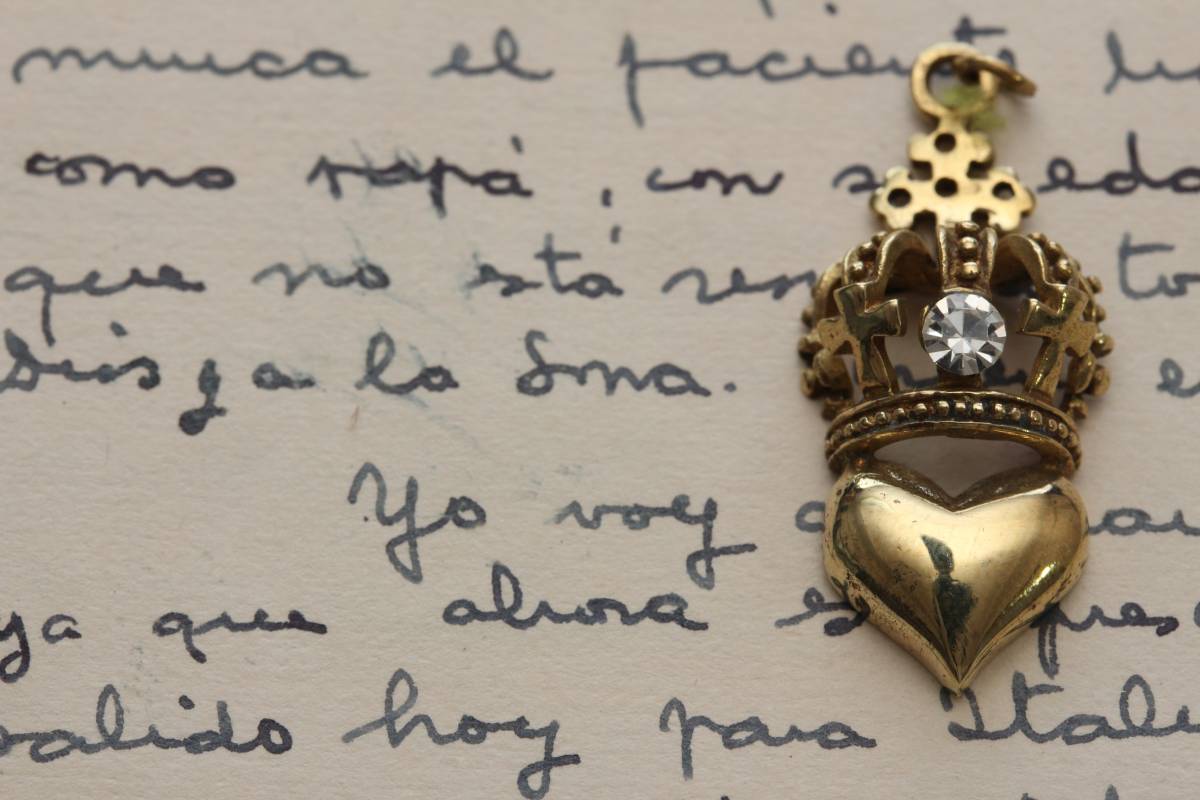 nunca el paciente
como papá, con su eda
que no está
Dios y a la Sma.
Yo voy
ya que ahora es
salido hoy para Itali